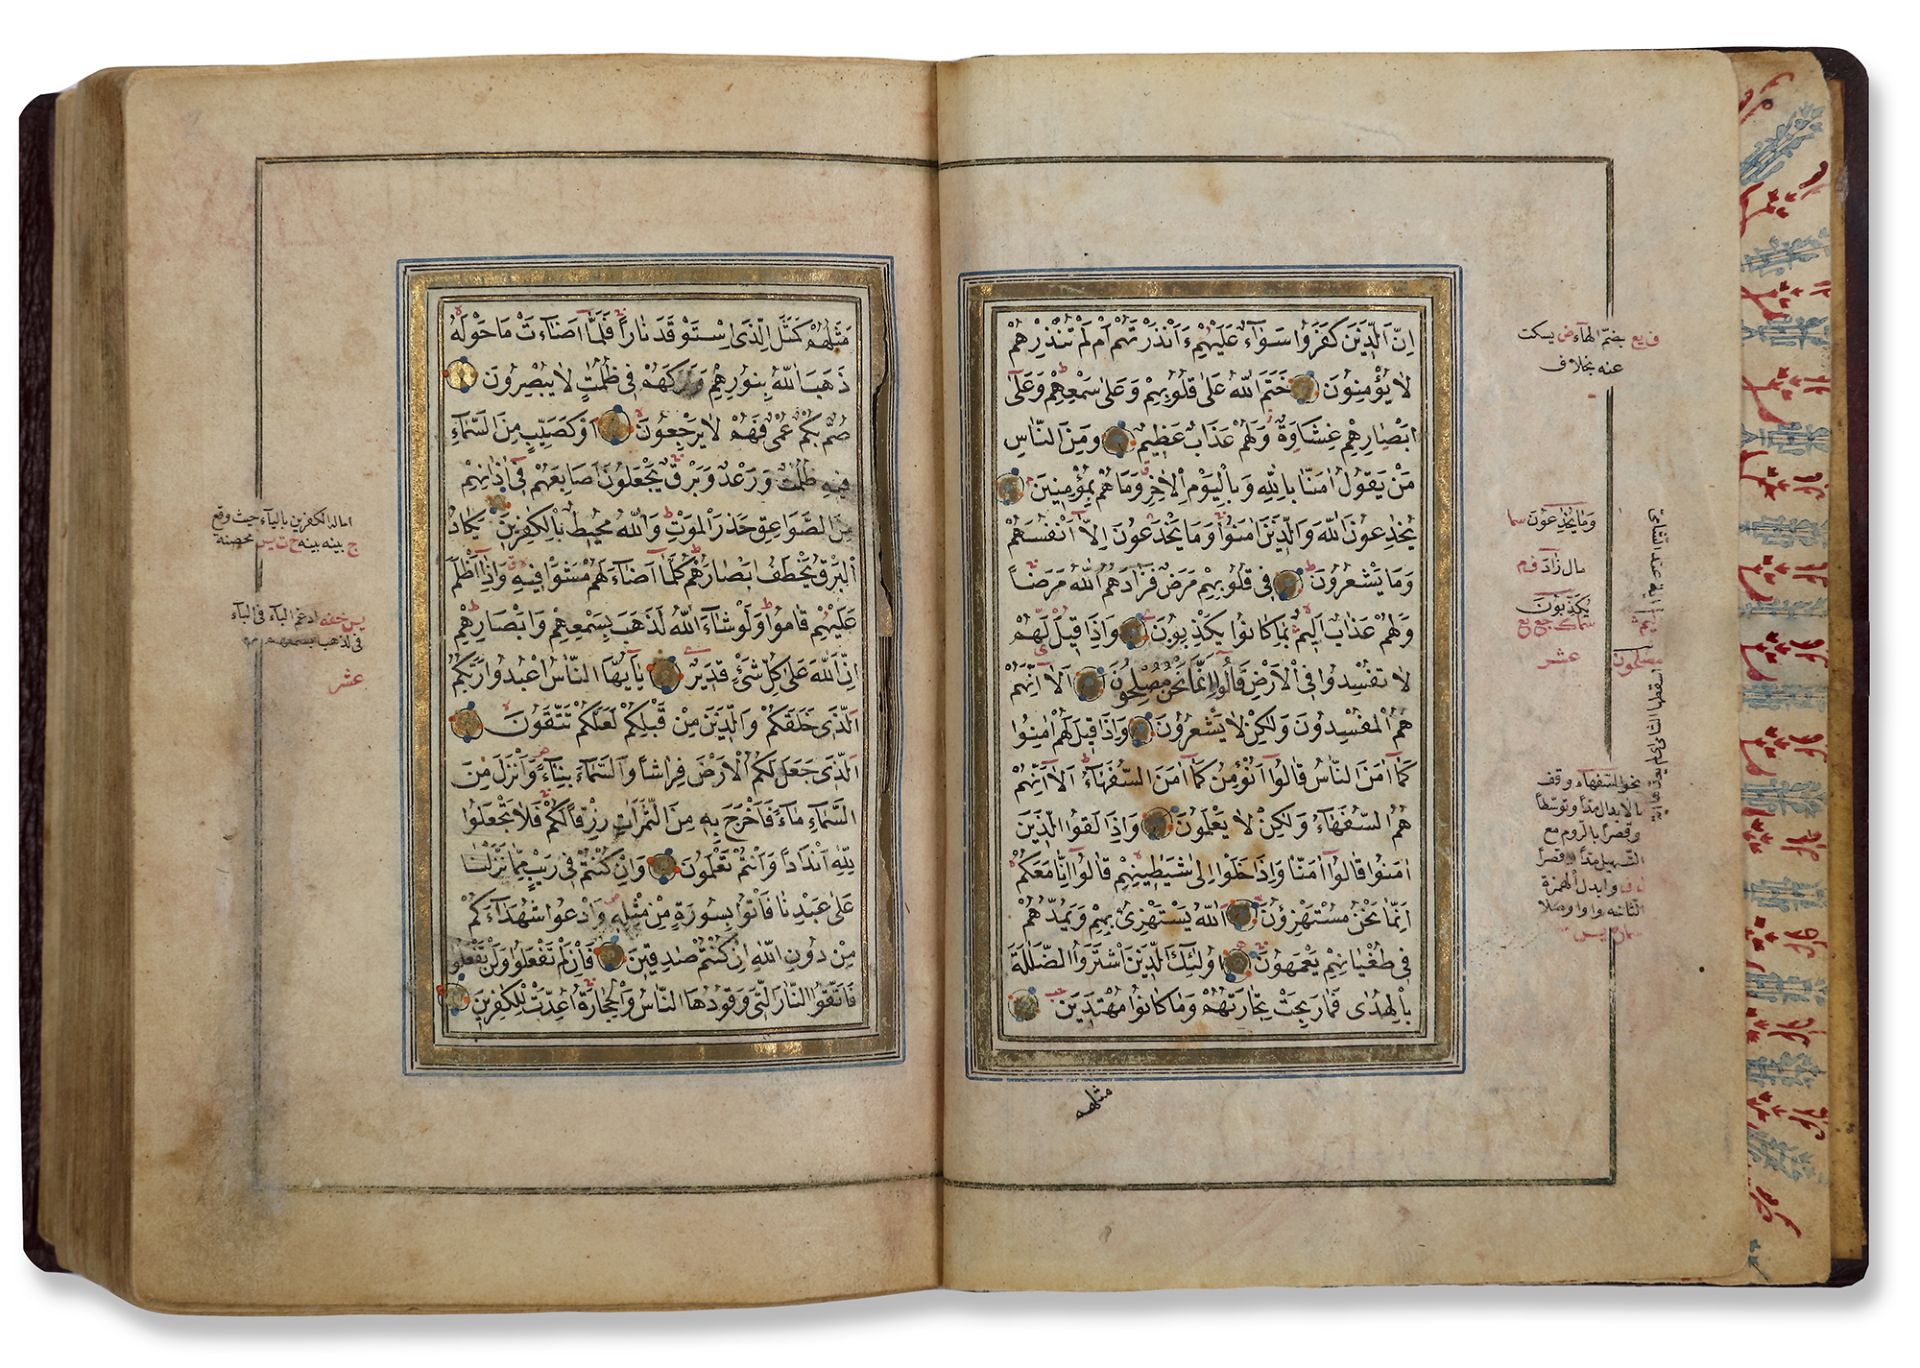 اِنَّ الَّذٖينَ كَفَرُوا سَوَٓاءٌ عَلَيْهِمْ ءَاَنْذَرْتَهُمْ اَمْ لَمْ تُنْذِرْهُمْ
لَا يُؤْمِنُونَ خَتَمَ اللّٰهُ عَلٰى قُلُوبِهِمْ وَعَلٰى سَمْعِهِمْ وَعَلٰٓى
اَبْصَارِهِمْ غِشَاوَةٌ وَلَهُمْ عَذَابٌ عَظٖيمٌ وَمِنَ النَّاسِ
مَنْ يَقُولُ اٰمَنَّا بِاللّٰهِ وَبِالْيَوْمِ الْاٰخِرِ وَمَا هُمْ بِمُؤْمِنٖينَ
يُخَادِعُونَ اللّٰهَ وَالَّذٖينَ اٰمَنُوا وَمَا يَخْدَعُونَ اِلَّٓا اَنْفُسَهُمْ
وَمَا يَشْعُرُونَ فٖى قُلُوبِهِمْ مَرَضٌ فَزَادَهُمُ اللّٰهُ مَرَضاً
وَلَهُمْ عَذَابٌ اَلٖيمٌ بِمَا كَانُوا يَكْذِبُونَ وَاِذَا قٖيلَ لَهُمْ
لَا تُفْسِدُوا فِى الْاَرْضِ قَالُٓوا اِنَّمَا نَحْنُ مُصْلِحُونَ اَلَٓا اِنَّهُمْ
هُمُ الْمُفْسِدُونَ وَلٰكِنْ لَا يَشْعُرُونَ وَاِذَا قٖيلَ لَهُمْ اٰمِنُوا
كَمَٓا اٰمَنَ النَّاسُ قَالُٓوا اَنُؤْمِنُ كَمَٓا اٰمَنَ السُّفَهَٓاءُ اَلَٓا اِنَّهُمْ
هُمُ السُّفَهَٓاءُ وَلٰكِنْ لَا يَعْلَمُونَ وَاِذَا لَقُوا الَّذٖينَ
اٰمَنُوا قَالُٓوا اٰمَنَّا وَاِذَا خَلَوْا اِلٰى شَيَاطٖينِهِمْ قَالُٓوا اِنَّا مَعَكُمْ
اِنَّمَا نَحْنُ مُسْتَهْزِؤُنَ اَللّٰهُ يَسْتَهْزِئُ بِهِمْ وَيَمُدُّهُمْ
فٖى طُغْيَانِهِمْ يَعْمَهُونَ اُولٰٓئِكَ الَّذٖينَ اشْتَرَوُا الضَّلَالَةَ
بِالْهُدٰى فَمَا رَبِحَتْ تِجَارَتُهُمْ وَمَا كَانُوا مُهْتَدٖينَ
مثلهم
بضم الهاء ض يسكت
عنه بخلاف
وما يخدعون سما
مال زاد ف م
يكذبون
عشر
مصلحون
نحو السفهاء وقف
بالابدال مداً وتوسطاً
وقصراً بالروم مع
التسهيل مداً وقصراً
وابدل الهمزة
الثانية واوا وصلا
مَثَلُهُمْ كَمَثَلِ الَّذِى اسْتَوْقَدَ نَاراً فَلَمَّٓا اَضَٓاءَتْ مَا حَوْلَهُ
ذَهَبَ اللّٰهُ بِنُورِهِمْ وَتَرَكَهُمْ فٖى ظُلُمَاتٍ لَا يُبْصِرُونَ
صُمٌّ بُكْمٌ عُمْىٌ فَهُمْ لَا يَرْجِعُونَ اَوْ كَصَيِّبٍ مِنَ السَّمَٓاءِ
فٖيهِ ظُلُمَاتٌ وَرَعْدٌ وَبَرْقٌ يَجْعَلُونَ اَصَابِعَهُمْ فٖٓى اٰذَانِهِمْ
مِنَ الصَّوَاعِقِ حَذَرَ الْمَوْتِ وَاللّٰهُ مُحٖيطٌ بِالْكَافِرٖينَ يَكَادُ
الْبَرْقُ يَخْطَفُ اَبْصَارَهُمْ كُلَّمَٓا اَضَٓاءَ لَهُمْ مَشَوْا فٖيهِ وَاِذَٓا اَظْلَمَ
عَلَيْهِمْ قَامُوا وَلَوْ شَٓاءَ اللّٰهُ لَذَهَبَ بِسَمْعِهِمْ وَاَبْصَارِهِمْ
اِنَّ اللّٰهَ عَلٰى كُلِّ شَىْءٍ قَدٖيرٌ يَٓا اَيُّهَا النَّاسُ اعْبُدُوا رَبَّكُمُ
الَّذٖى خَلَقَكُمْ وَالَّذٖينَ مِنْ قَبْلِكُمْ لَعَلَّكُمْ تَتَّقُونَ
الَّذٖى جَعَلَ لَكُمُ الْاَرْضَ فِرَاشاً وَالسَّمَٓاءَ بِنَٓاءً وَاَنْزَلَ مِنَ
السَّمَٓاءِ مَٓاءً فَاَخْرَجَ بِهٖ مِنَ الثَّمَرَاتِ رِزْقاً لَكُمْ فَلَا تَجْعَلُوا
لِلّٰهِ اَنْدَاداً وَاَنْتُمْ تَعْلَمُونَ وَاِنْ كُنْتُمْ فٖى رَيْبٍ مِمَّا نَزَّلْنَا
عَلٰى عَبْدِنَا فَأْتُوا بِسُورَةٍ مِنْ مِثْلِهٖ وَادْعُوا شُهَدَٓاءَكُمْ
مِنْ دُونِ اللّٰهِ اِنْ كُنْتُمْ صَادِقٖينَ فَاِنْ لَمْ تَفْعَلُوا وَلَنْ تَفْعَلُوا
فَاتَّقُوا النَّارَ الَّتٖى وَقُودُهَا النَّاسُ وَالْحِجَارَةُ اُعِدَّتْ لِلْكَافِرٖينَ
امال الكفرين بالياء حيث وقع
بينه بينه
ادغم الباء فى الباء
فى لذهب بسمعهم
عشر